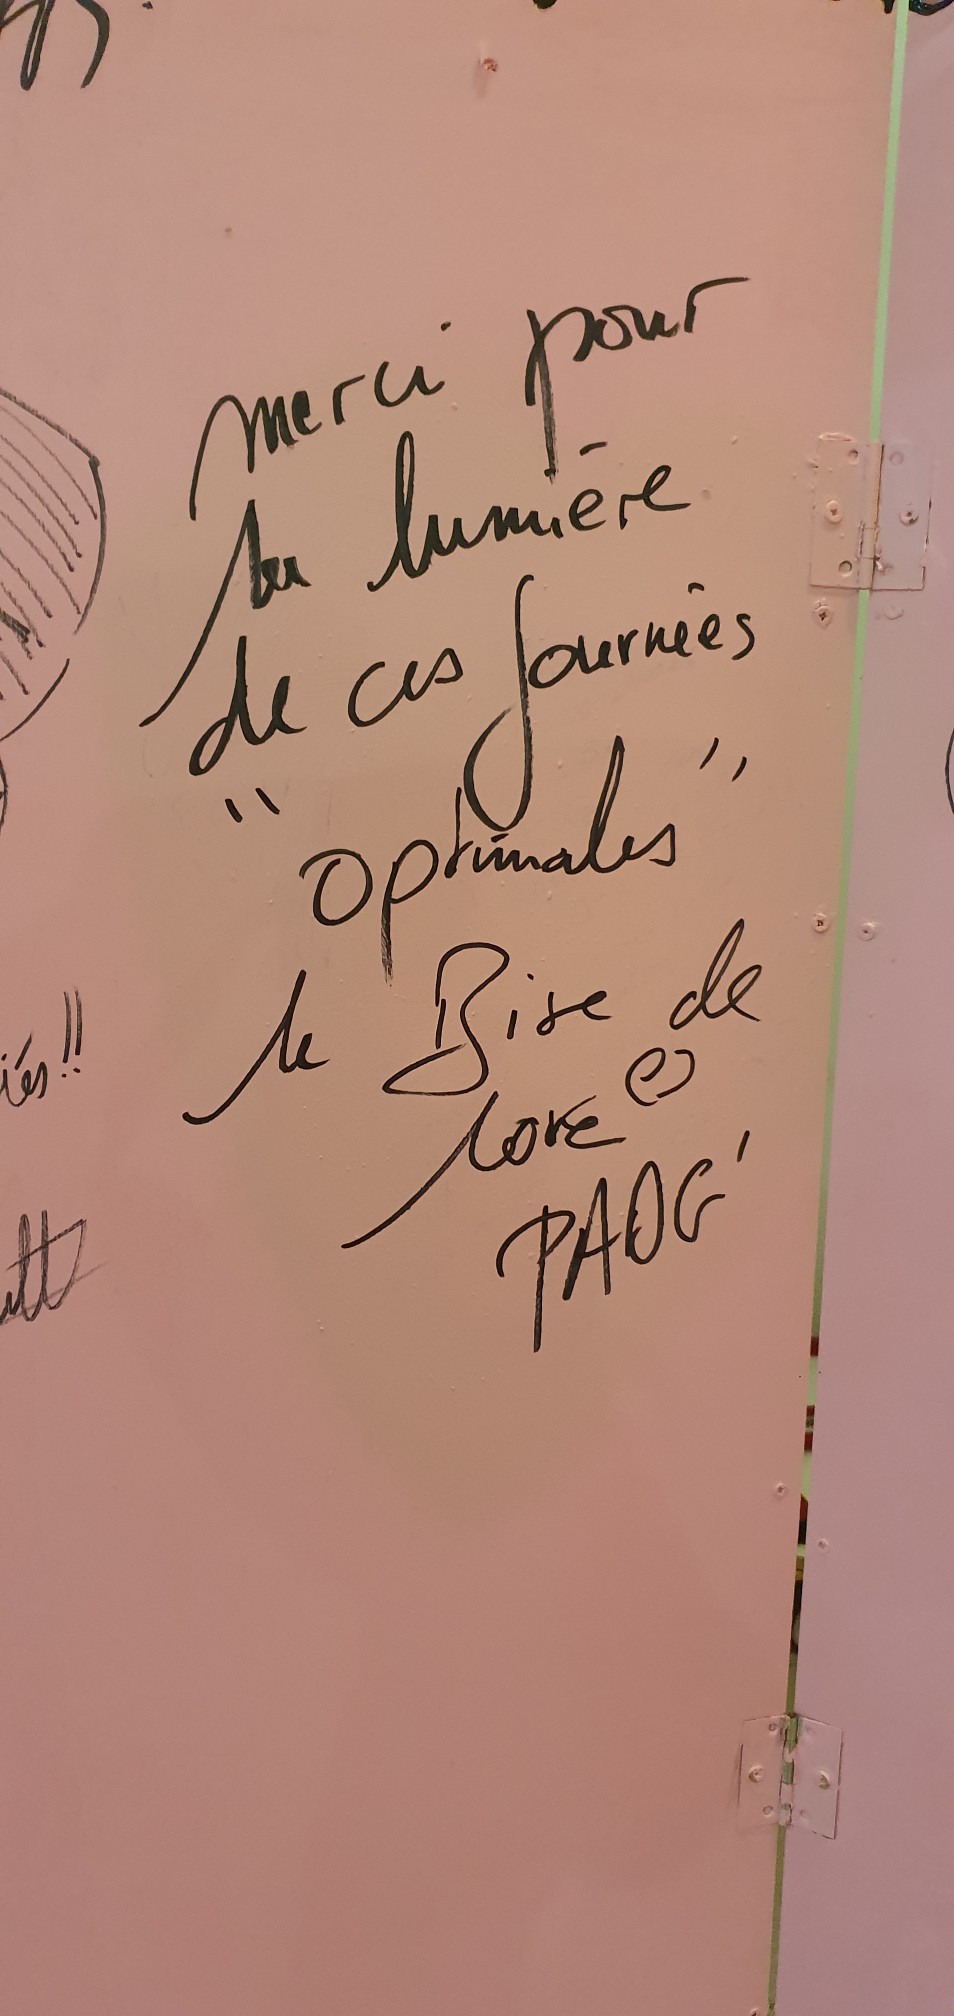 merci pour
la lumière
de ces journées
"optimales"
la Bise de
PAOG'
iés!!